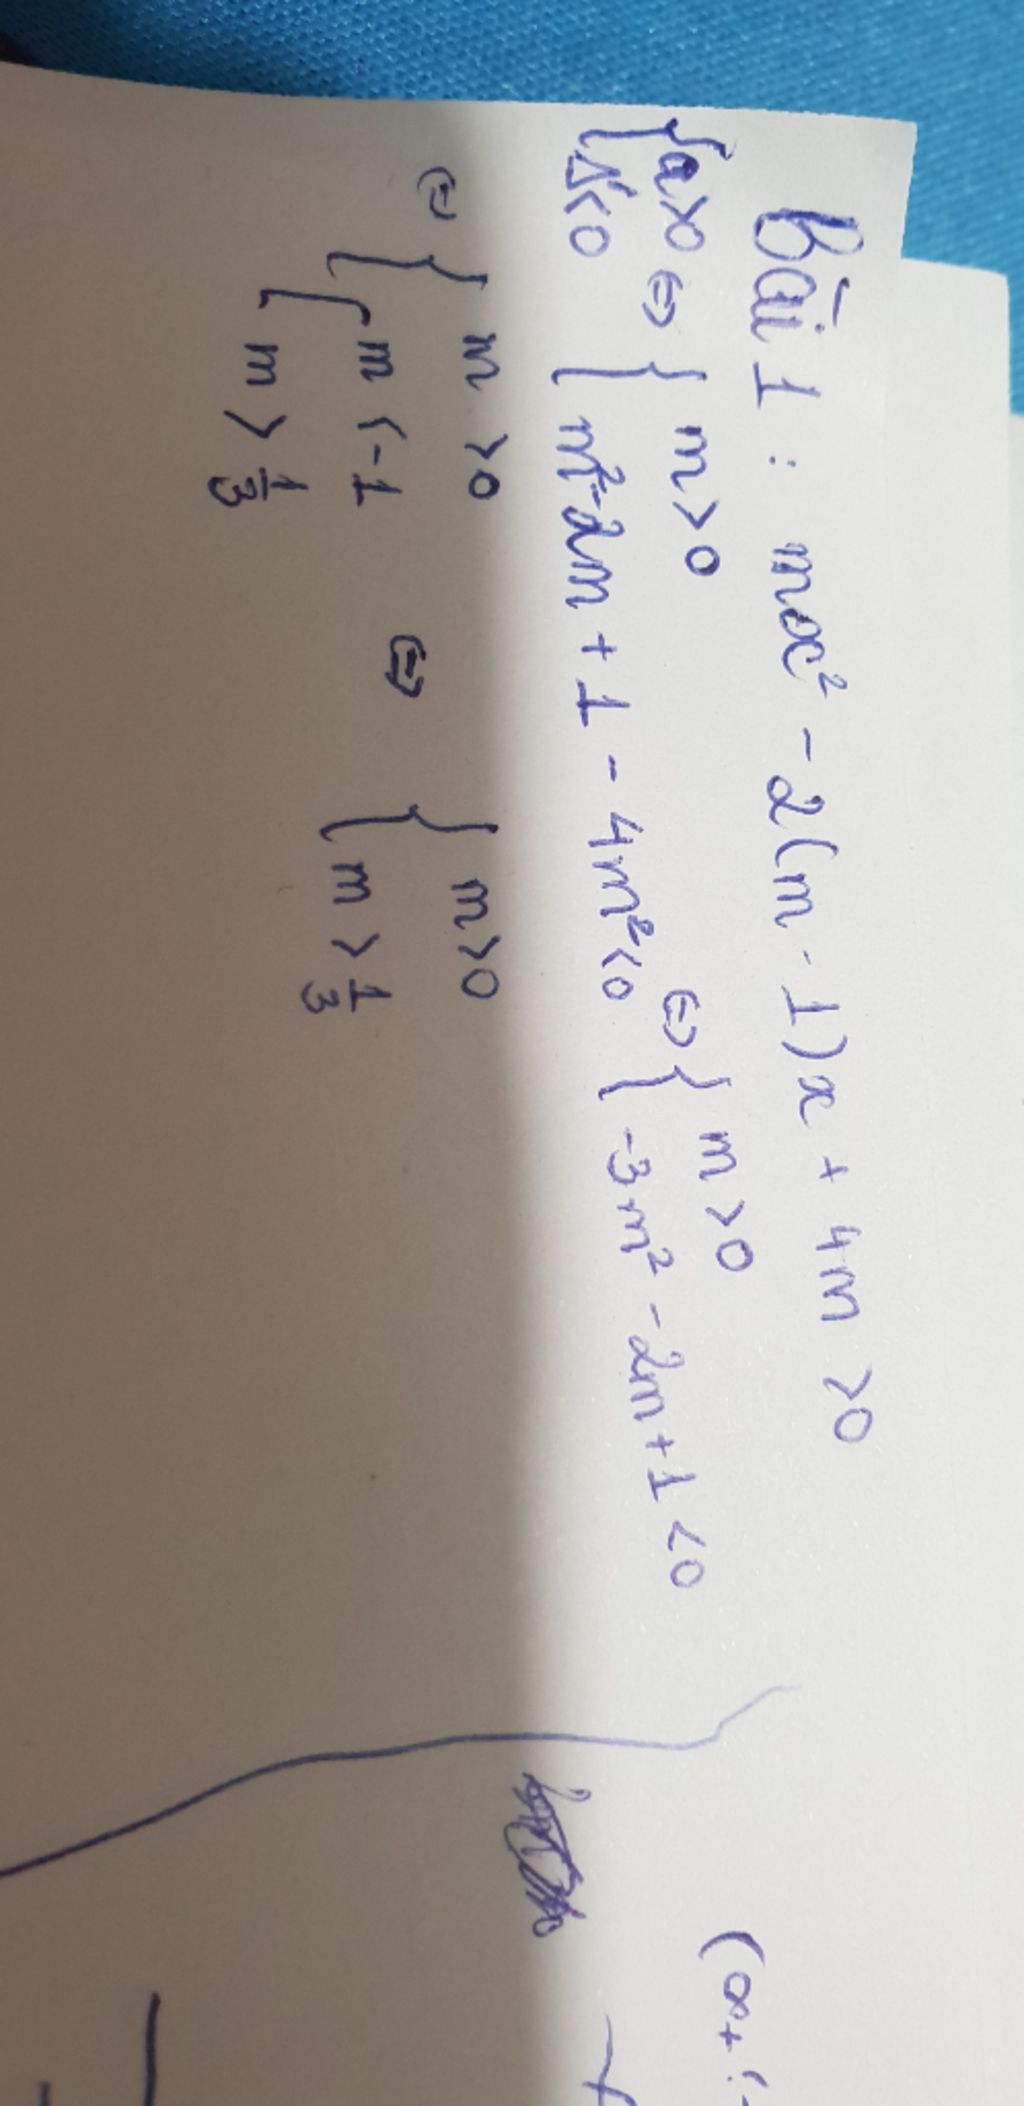 Bài 1 : mx² - 2(m - 1)x + 4m > 0
{ a > 0 ⇔ { m > 0 ⇔ { m > 0
{ Δ' < 0 { m² - 2m + 1 - 4m² < 0 { -3m² - 2m + 1 < 0
⇔ { m > 0 ⇔ { m > 0
{ [ m < -1 { m > 1/3
[ m > 1/3